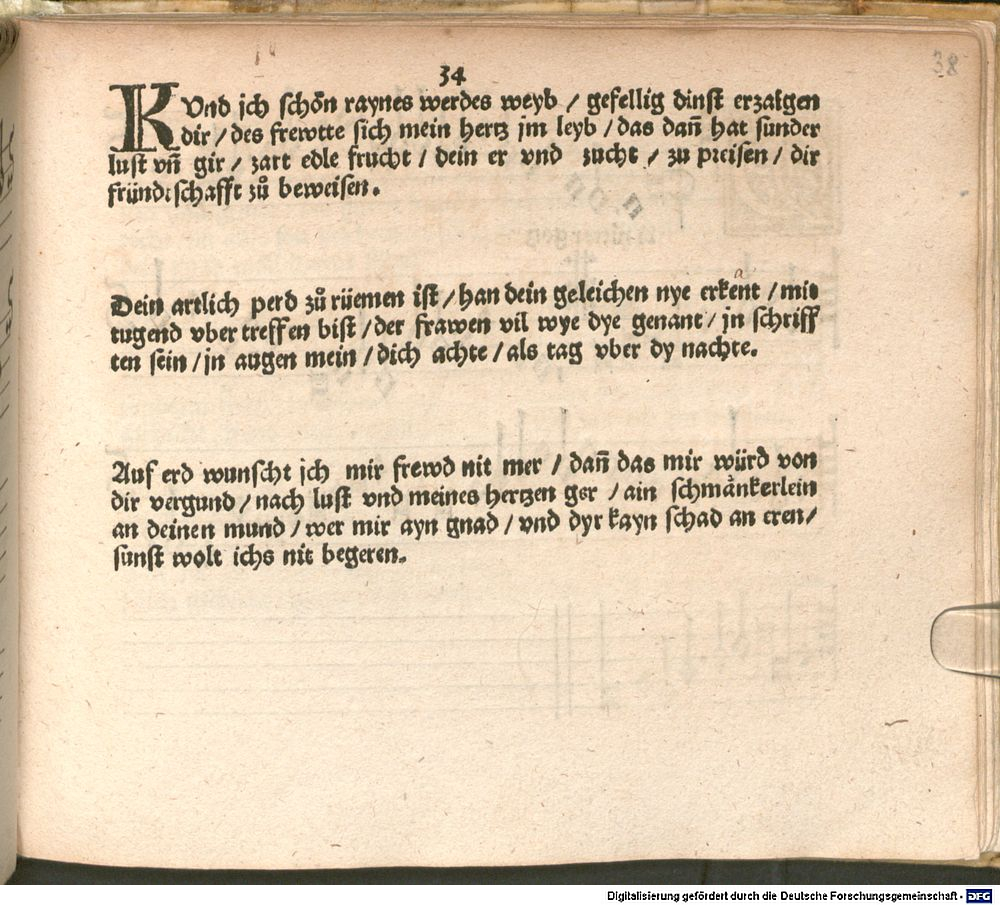 38
34
KVnd jch schön raynes werdes weyb / gefellig dinst erzaigen
dir / des frewtte sich mein hertz jm leyb / das dañ hat sunder
lust vñ gir / zart edle frucht / dein er vnd zucht / zu preisen / dir
fründtschafft zů beweisen.
Dein artlich perd zů rüemen ist / han dein geleichen nye erkent / mit
tugend vber treffen bist / der frawen vil wye dye genant / jn schriff
ten sein / jn augen mein / dich achte / als tag vber dy nachte.
Auf erd wunscht jch mir frewd nit mer / dañ das mir würd von
dir vergund / nach lust vnd meines hertzen ger / ain schmånkerlein
an deinen mund / wer mir ayn gnad / vnd dyr kayn schad an eren /
sunst wolt ichs nit begeren.
Digitalisierung gefördert durch die Deutsche Forschungsgemeinschaft - DFG